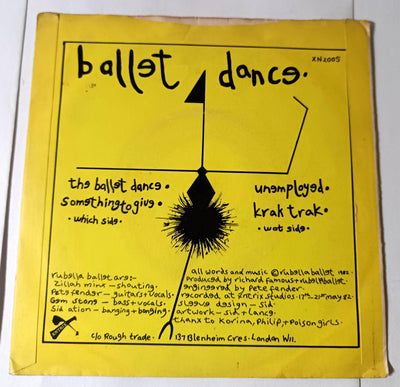 XN2005
ballet dance.
the ballet dance.
something to give.
. which side.
unemployed.
krak trak.
. wot side.
rubella ballet are:-
Zillah minx - shouting.
Pete fender - guitars + vocals.
Gem stone - bass + vocals.
Sid ation - banging + banging.
all words and music © rubella ballet 1982.
produced by richard famous + rubella ballet
engineered by Pete fender.
recorded at Xntrix studios. 17th-21st may 82.
sleeve design - sid.
artwork - sid + lance.
thanx to Korina, Philip, + Poison girls.
c/o Rough trade. 137 Blenheim Cres. London W11.